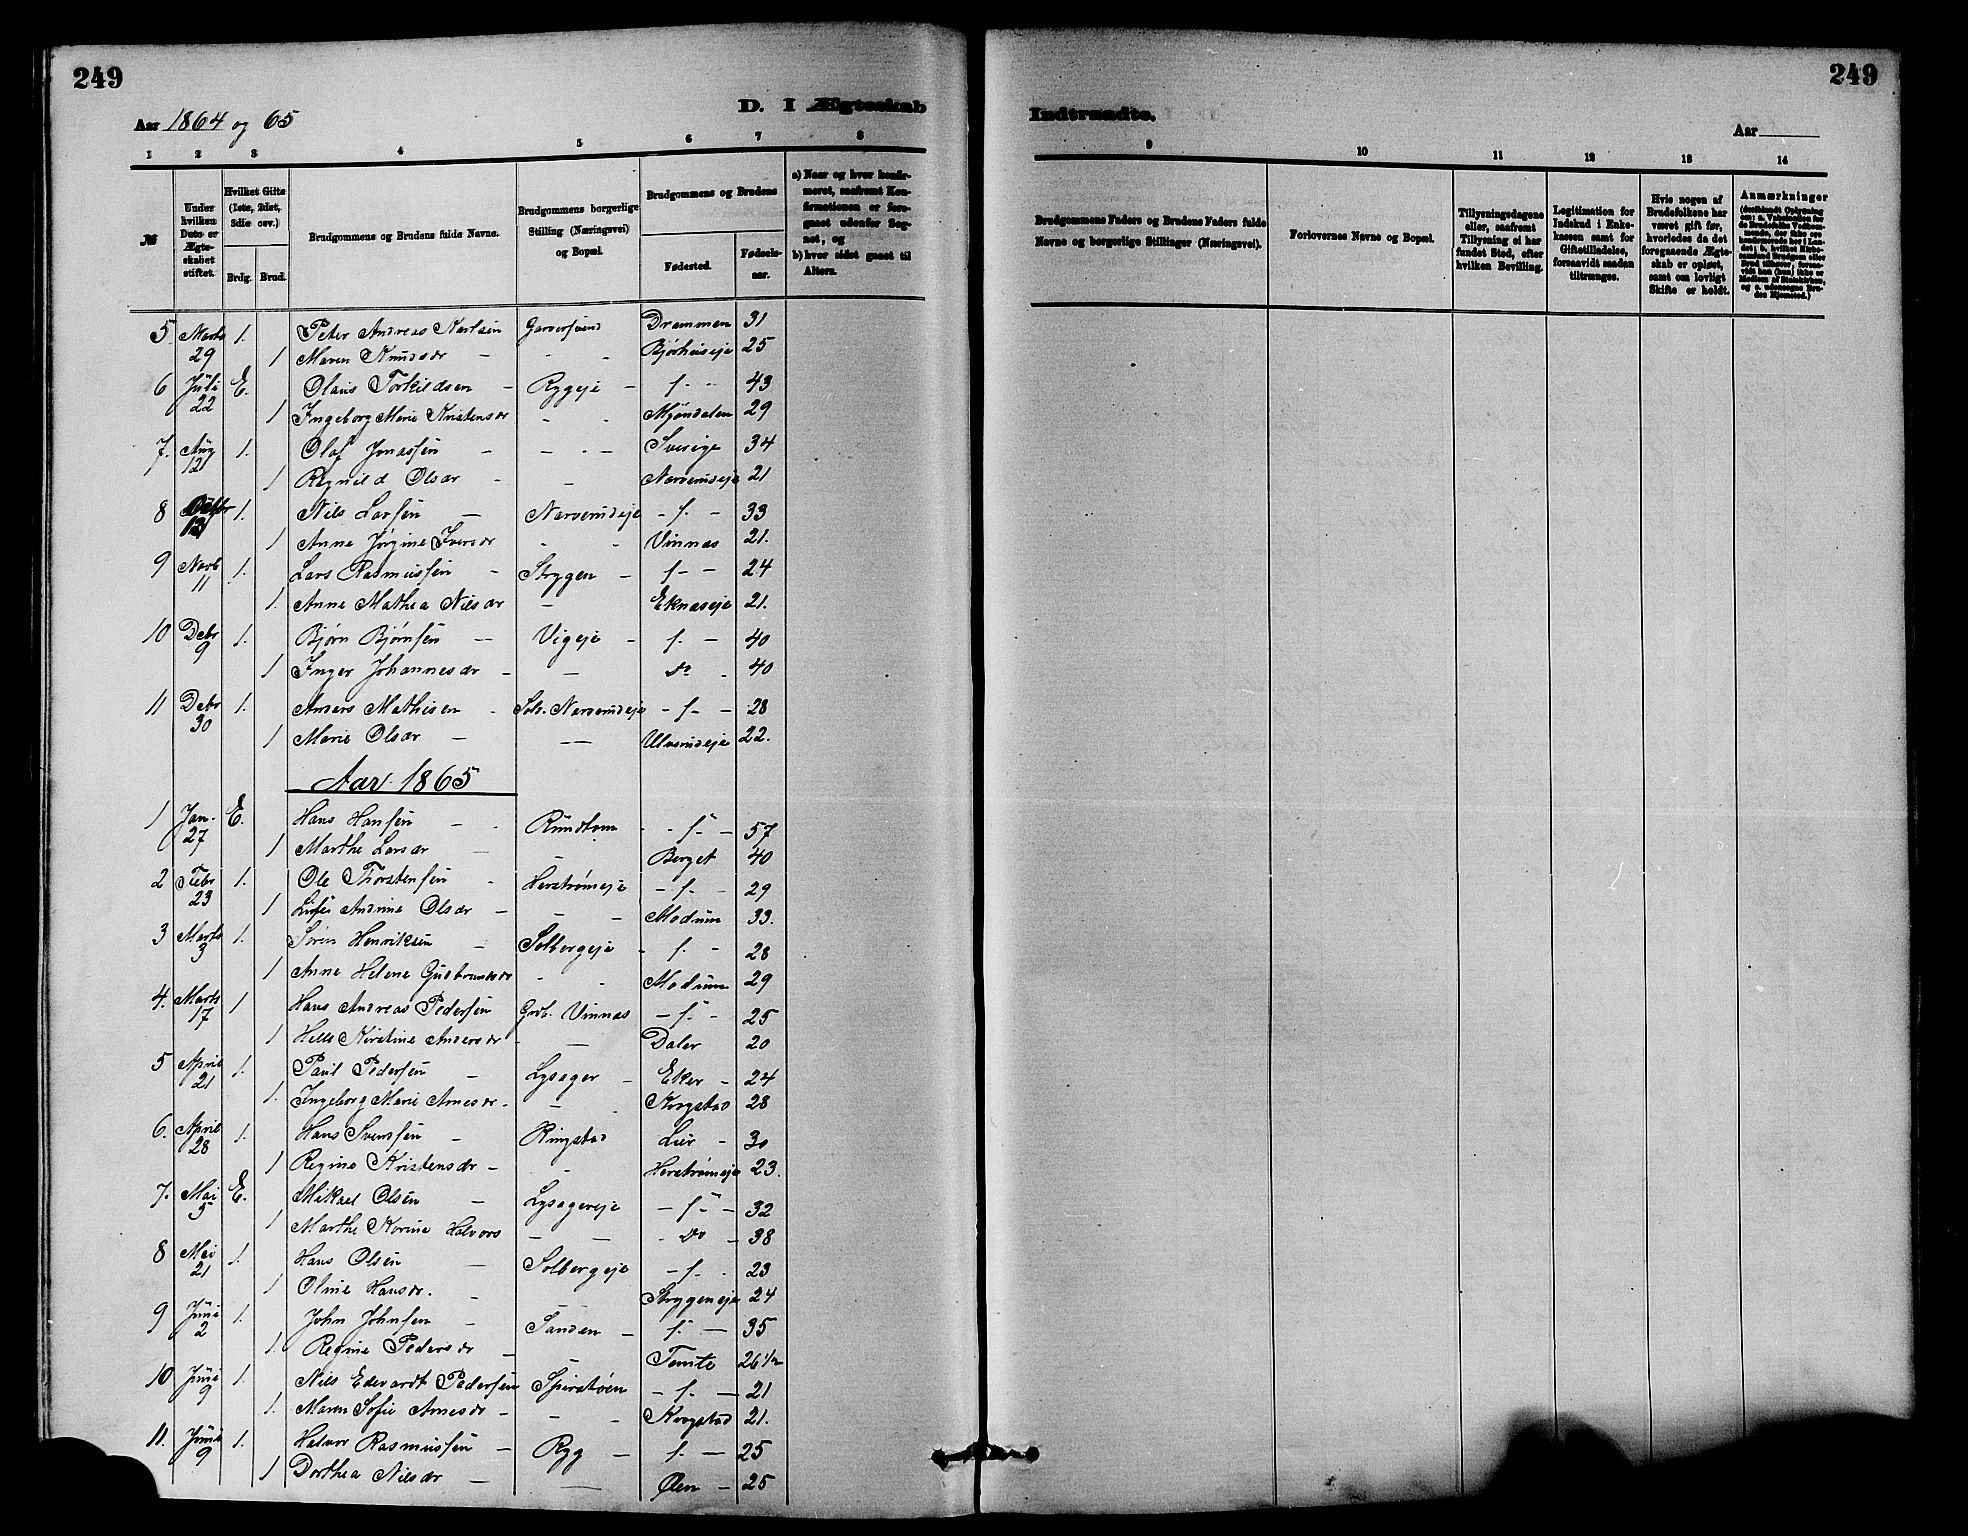 249
249
D. I Ægteskab
Indtraadte.
Aar 1864 og 65
Aar
1 2 3 4 5 6 7 8
9 10 11 12 13 14
№
Under hvilken Dato er Ægteskabet stiftet.
Hvilket Gifte (1ste, 2det, 3die osv.)
Brdg. Brud.
Brudgommens og Brudens fulde Navne.
Brudgommens borgerlige Stilling (Næringsvei) og Bopæl.
Brudgommens og Brudens
Fødested.
Fødselsaar.
a) Naar og hvor konfirmeret, saafremt Konfirmationen er foregaaet udenfor Sognet, og
b) hvor sidst gaaet til Alters.
Brudgommens Faders og Brudens Faders fulde Navne og borgerlige Stillinger (Næringsvei).
Forlovernes Navne og Bopæl.
Tillysningsdagene eller, saafremt Tillysning ei har fundet Sted, efter hvilken Bevilling.
Legitimation for Indskud i Enkekassen samt for Giftetilladelse, forsaavidt saadan tiltrænges.
Hvis nogen af Brudefolkene har været gift før, hvorledes da det foregaaende Ægteskab er opløst, samt om lovligt Skifte er holdt.
Anmærkninger
5 Marts 29 1. Peter Andreas Karlsen Garversvend Drammen 31
1 Maren Knudsdr - - - Bjørhuseje 25
6 Juli 22 E. Olaus Torkildsen - Rygeje - f. - 43
1 Ingeborg Marie Kristensdr - - Mjøndalen 29
7. Aug 12 1. Olaf Jonassen - - - Sverige 34
1 Regnild Olsdr - - Narverudeje 21
8 1. Nils Larsen - Narverudeje - f. - 33
1 Anne Jørgine Iversdr - - Vinnas 21.
9 Novb 11 1. Lars Rasmussen - Strygen - f. - 24
1. Anne Mathea Nilsdr - Eknaseje 21.
10 Debr 9 1. Bjørn Bjørnsen - Vigeje - f. - 40
1 Inger Johannesdr - - Do - 40
11 Debr 30 1. Anders Mathisen - Sols. Narverudeje - f. - 28
1 Marie Olsdr - - Ulverudeje 22.
Aar 1865
1 Jan. 27 E. Hans Hansen - Rundtom - f. - 57
1 Marthe Larsdr - - Berget 40
2 Febr 23 1. Ole Thorstensen - Herstrømeje - f. - 29
1 Andrine Olsdr - - - Modum 33.
3 Marts 3 1. Søren Henriksen - Solbergeje - f. - 28
1 Anne Helene Gudbrandsdr - - Modum 29
4. Marts 17 1 Hans Andreas Pedersen Grdb. Vinnas - f. - 25
1 Helle Kirstine Andersdr - - Daler 20
5 April 21 1. Paul Pedersen - Lysager - Eker - 24
1. Ingeborg Marie Arnesdr - - Krogstad 28
6. April 28 1. Hans Svendsen - Ringstad Lier - 30
1 Regine Kristensdr - - Herstrømeje 23.
7. Mai 5 E. Mikael Olsen - Lysagereje - f. - 32
1 Marthe Karine Halvors - - Do - 38
8 Mai 21 1. Hans Olsen - Solbergeje - f. - 23
1 Oline Hansdr. - Strygeneje 24
9 Juni 2 1. John Johnsen - Sanden - f. - 35
1. Regine Pedersdr - - Temte 26 1/2
10 Juni 9 1. Nils Edevardt Pedersen Spiratøen - f. - 21
1. Maren Sofie Arnesdr - - - Krogstad 21.
11. Juni 9 1. Halvor Rasmussen - Ryg - f. - 25
1 Dorthea Nilsdr - - Ølen - 25